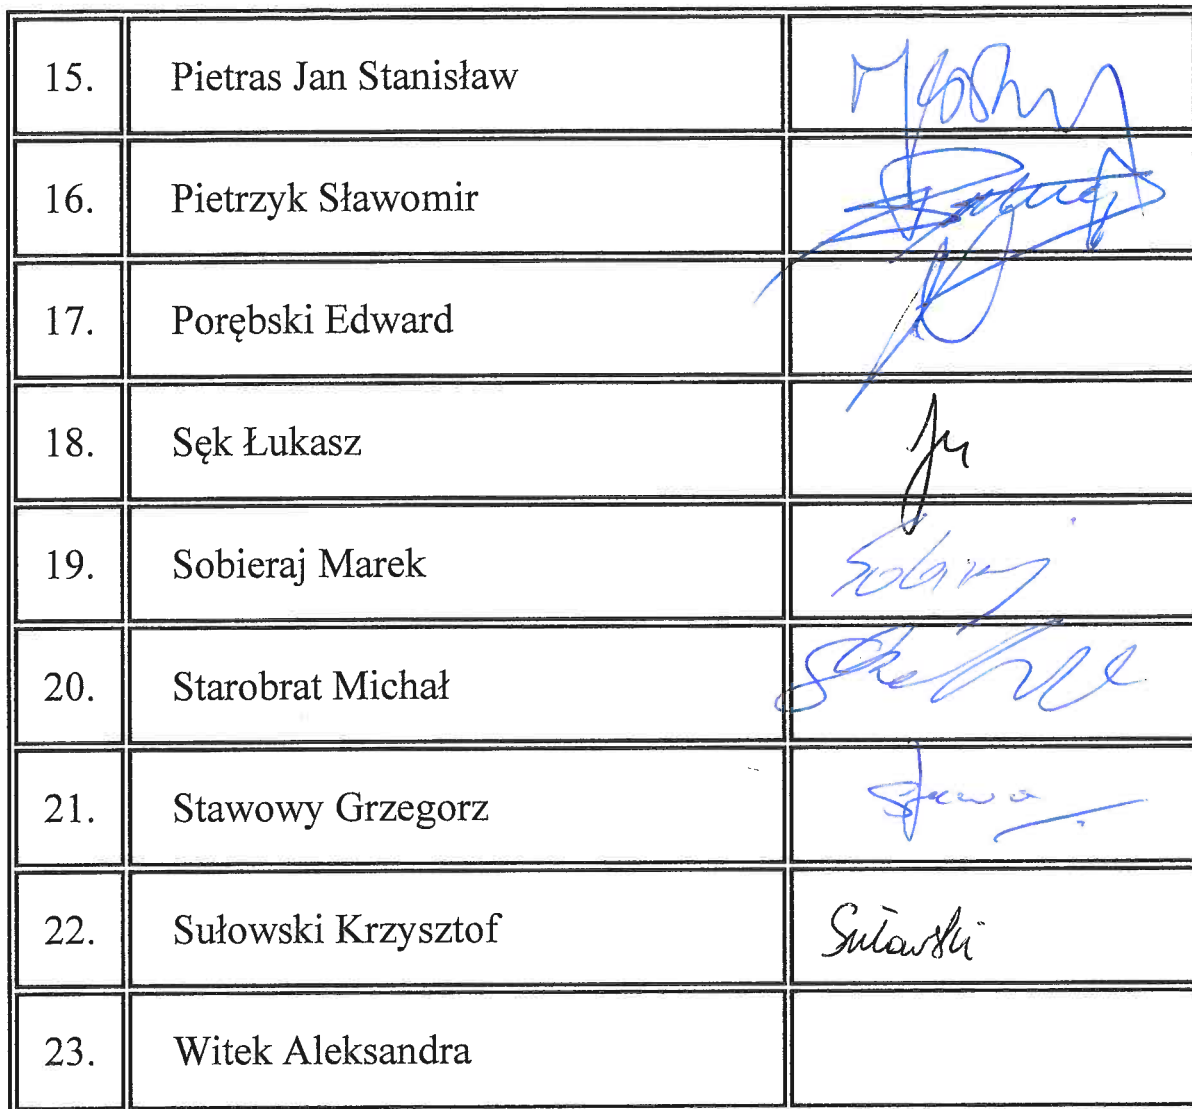 15. Pietras Jan Stanisław
16. Pietrzyk Sławomir
17. Porębski Edward
18. Sęk Łukasz
19. Sobieraj Marek
20. Starobrat Michał
21. Stawowy Grzegorz
22. Sułowski Krzysztof Sułowski
23. Witek Aleksandra